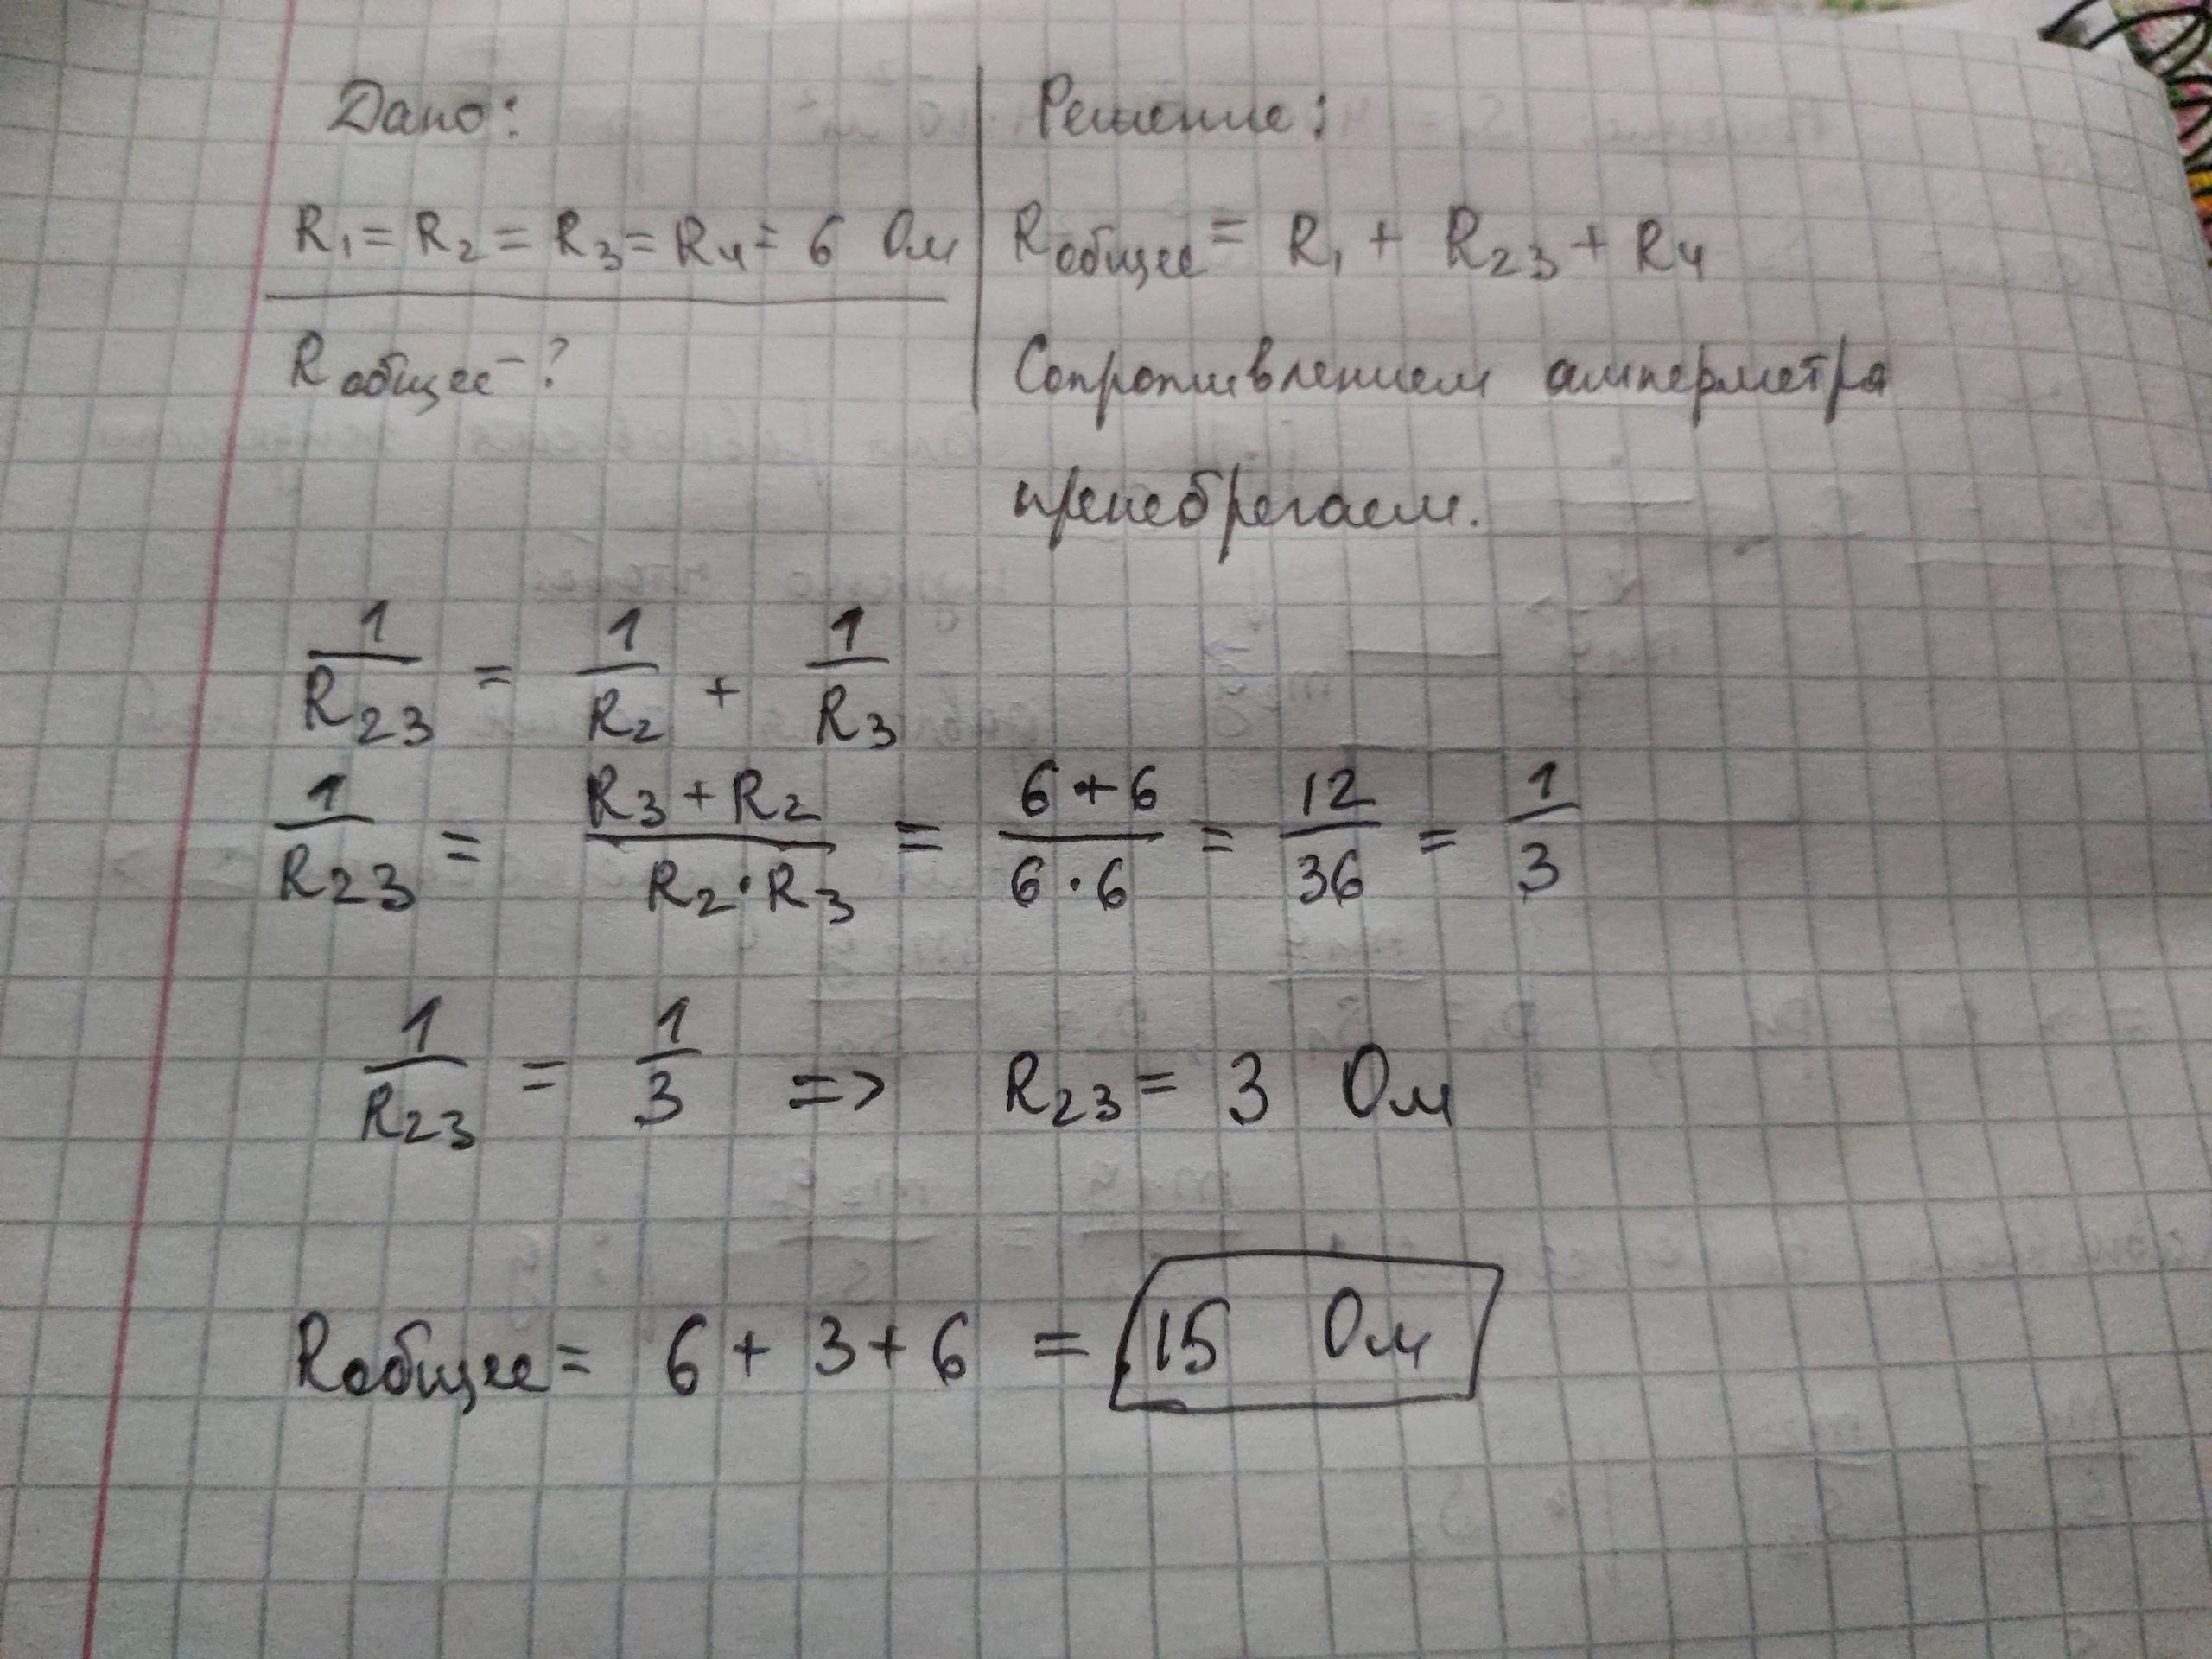 Дано:
Решение:
R₁ = R₂ = R₃ = R₄ = 6 Ом
Rобщее = R₁ + R₂₃ + R₄
Rобщее - ?
Сопротивлением амперметра
пренебрегаем.
1/R₂₃ = 1/R₂ + 1/R₃
1/R₂₃ = (R₃ + R₂)/(R₂ · R₃) = (6 + 6)/(6 · 6) = 12/36 = 1/3
1/R₂₃ = 1/3 => R₂₃ = 3 Ом
Rобщее = 6 + 3 + 6 = 15 Ом